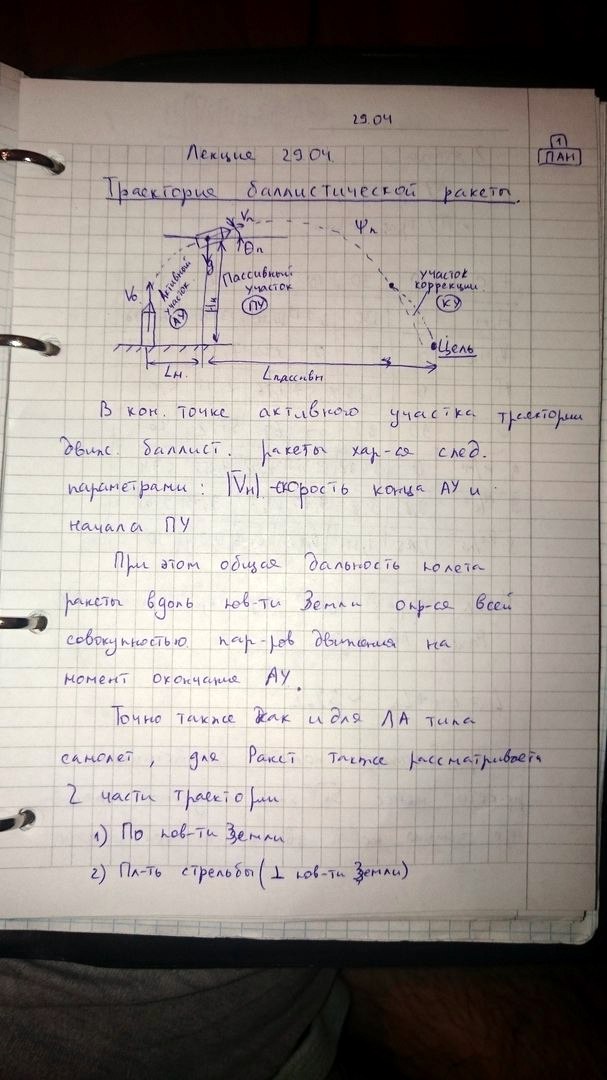 29.04
1
ПАН
Лекция 29.04.
Траектория баллистической ракеты.
Vп
Ψп
Θп
V₀
Активный участок
АУ
Пассивный участок
ПУ
Hн
G
участок коррекции
КУ
Цель
Lн.
Lпассивн
В кон. точке активного участка траектории
движ. баллист. ракеты хар-ся след.
параметрами: |V̅н| - скорость конца АУ и
начала ПУ
При этом общая дальность полета
ракеты вдоль пов-ти Земли опр-ся всей
совокупностью пар-ров движения на
момент окончания АУ.
Точно также как и для ЛА типа
самолет, для Ракет также рассматривается
2 части траектории
1) По пов-ти Земли
2) Пл-ть стрельбы (⊥ пов-ти Земли)